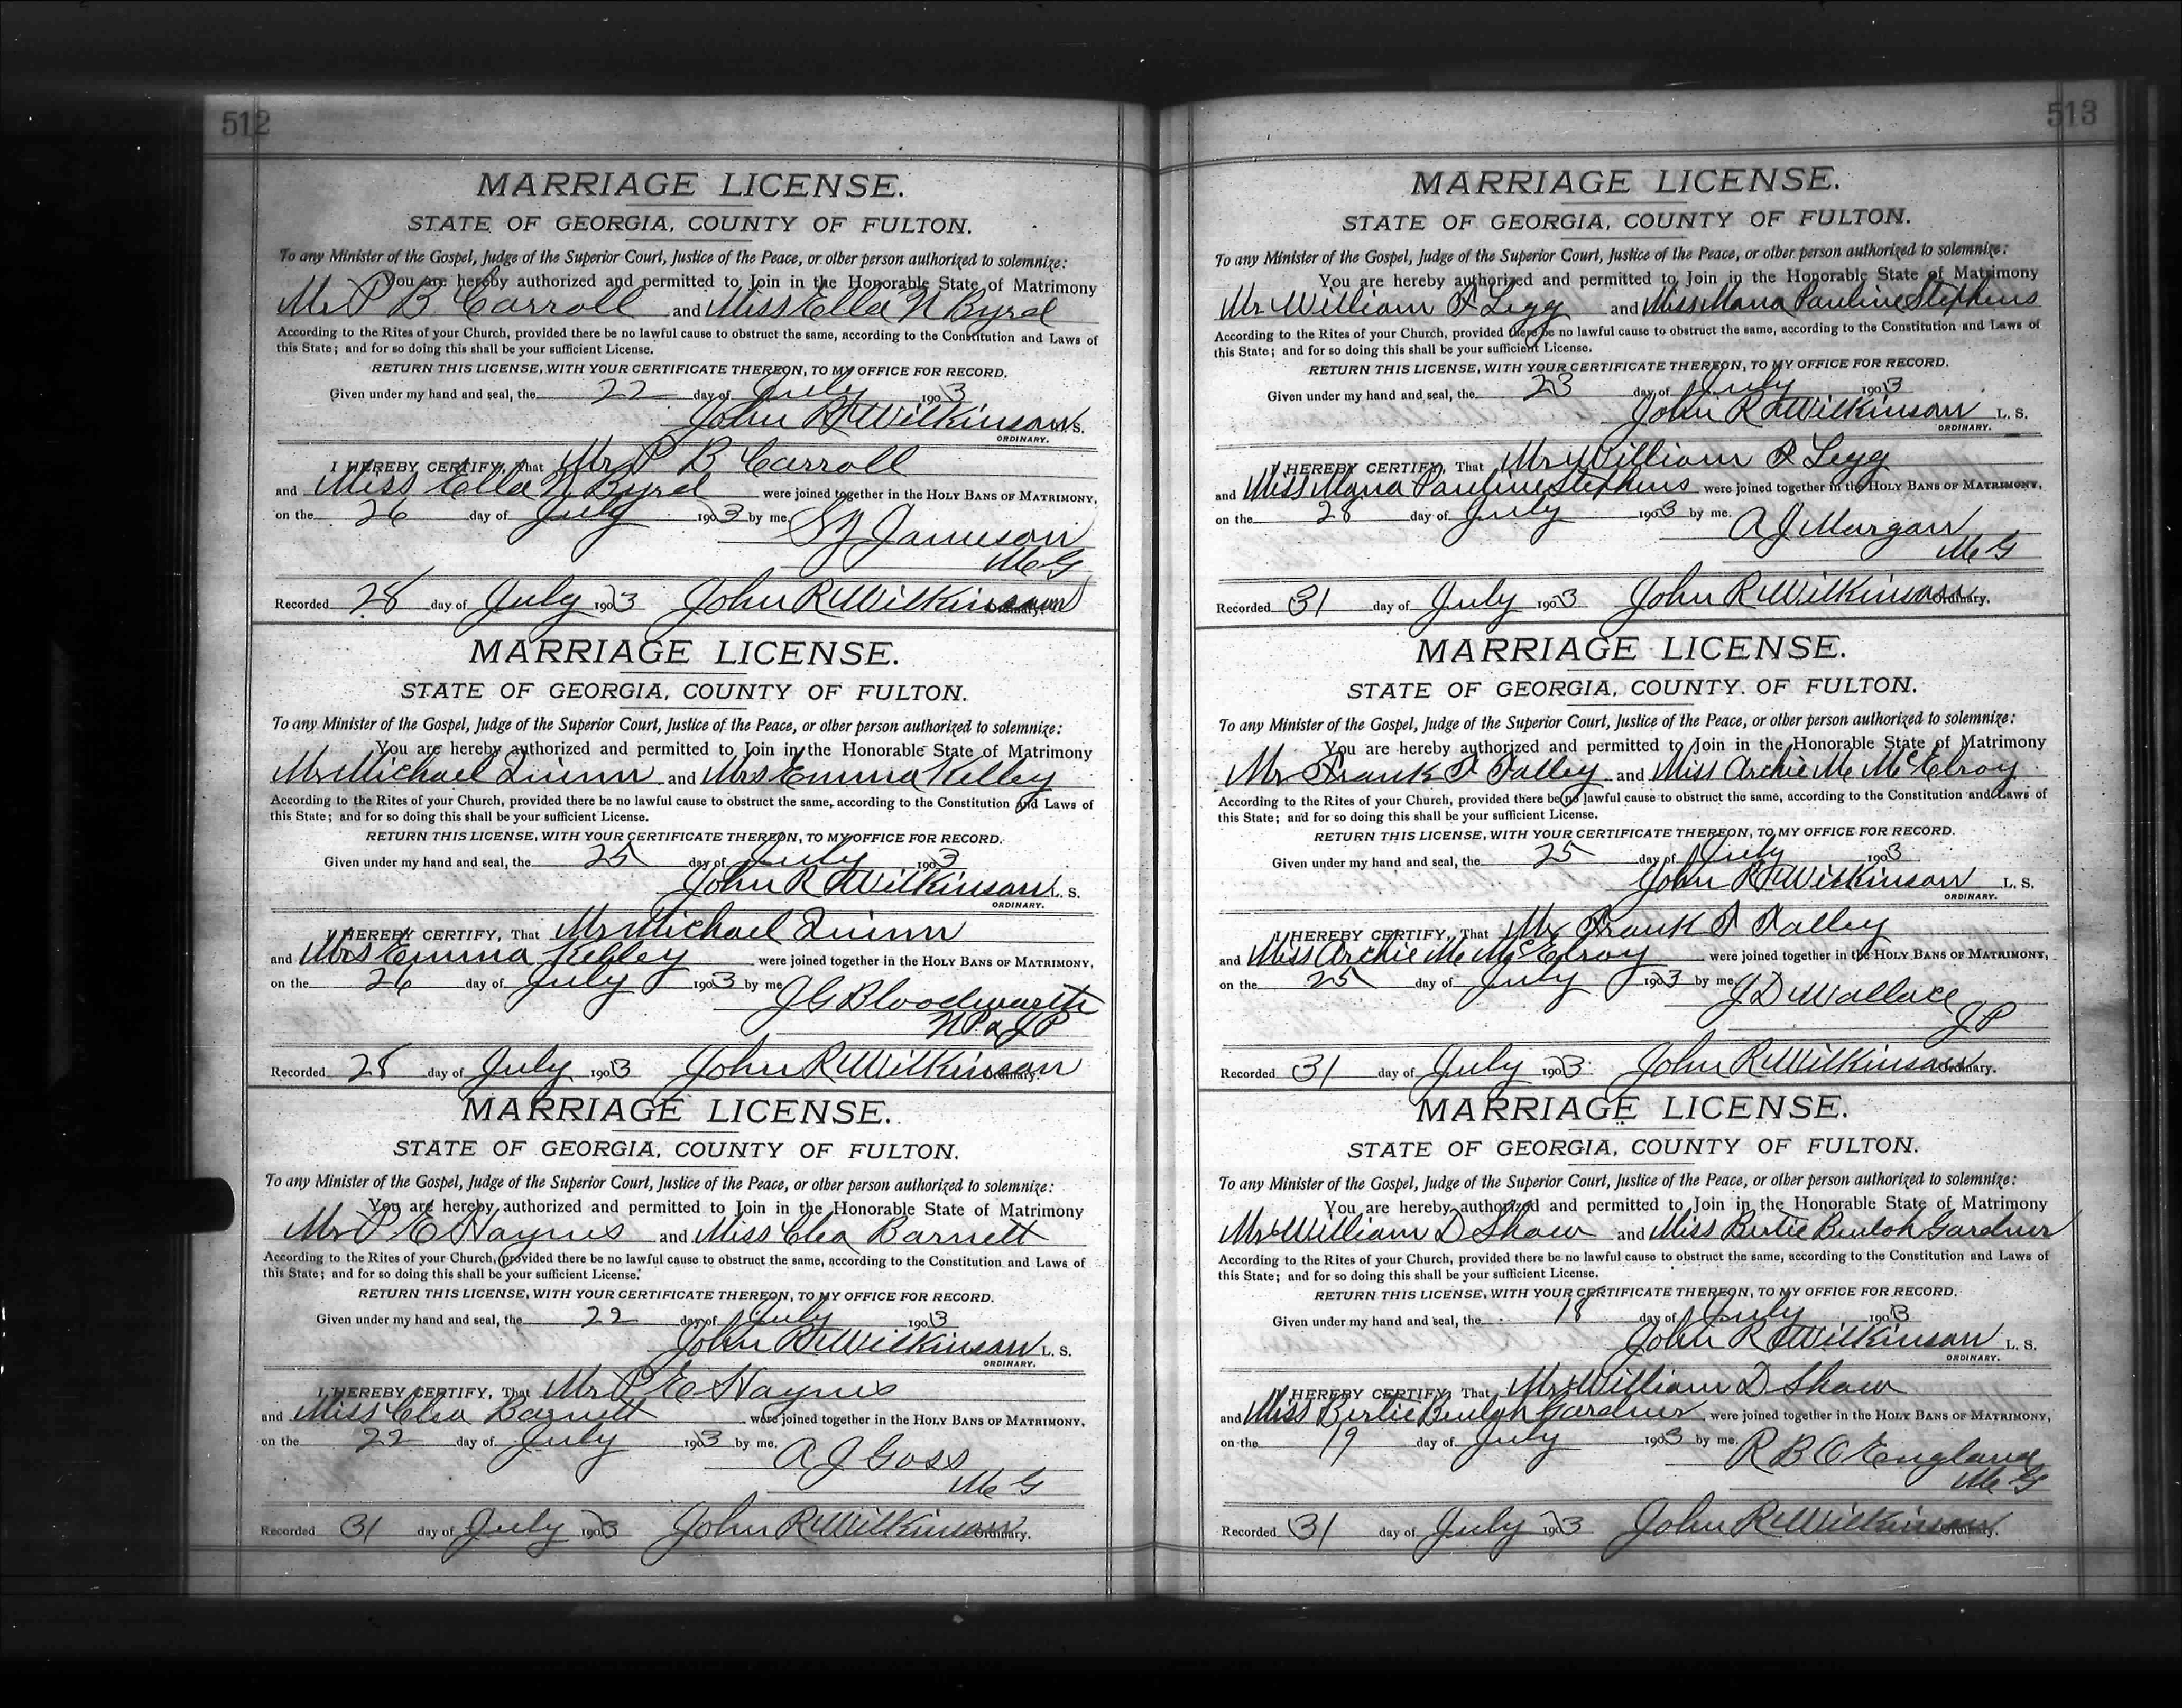 512
MARRIAGE LICENSE.
STATE OF GEORGIA, COUNTY OF FULTON.
To any Minister of the Gospel, Judge of the Superior Court, Justice of the Peace, or other person authorized to solemnize:
You are hereby authorized and permitted to Join in the Honorable State of Matrimony
Mr P B Carroll and Miss Ella N Byrd
According to the Rites of your Church, provided there be no lawful cause to obstruct the same, according to the Constitution and Laws of
this State; and for so doing this shall be your sufficient License.
RETURN THIS LICENSE, WITH YOUR CERTIFICATE THEREON, TO MY OFFICE FOR RECORD.
Given under my hand and seal, the 22 day of July 1903
John R Wilkinson L. S.
ORDINARY.
I HEREBY CERTIFY, That Mr P B Carroll
and Miss Ella N Byrd were joined together in the HOLY BANS OF MATRIMONY,
on the 26 day of July 1903 by me. S Y Jameson
M G
Recorded 28 day of July 1903 John R Wilkinson Ordinary.
MARRIAGE LICENSE.
STATE OF GEORGIA, COUNTY OF FULTON.
To any Minister of the Gospel, Judge of the Superior Court, Justice of the Peace, or other person authorized to solemnize:
You are hereby authorized and permitted to Join in the Honorable State of Matrimony
Mr Michael Quinn and Mrs Emma Kelley
According to the Rites of your Church, provided there be no lawful cause to obstruct the same, according to the Constitution and Laws of
this State; and for so doing this shall be your sufficient License.
RETURN THIS LICENSE, WITH YOUR CERTIFICATE THEREON, TO MY OFFICE FOR RECORD.
Given under my hand and seal, the 25 day of July 1903
John R Wilkinson L. S.
ORDINARY.
I HEREBY CERTIFY, That Mr Michael Quinn
and Mrs Emma Kelley were joined together in the HOLY BANS OF MATRIMONY,
on the 26 day of July 1903 by me J G Bloodworth
N P & J P
Recorded 28 day of July 1903 John R Wilkinson Ordinary.
MARRIAGE LICENSE.
STATE OF GEORGIA, COUNTY OF FULTON.
To any Minister of the Gospel, Judge of the Superior Court, Justice of the Peace, or other person authorized to solemnize:
You are hereby authorized and permitted to Join in the Honorable State of Matrimony
Mr P E Haynes and Miss Clea Barnett
According to the Rites of your Church, provided there be no lawful cause to obstruct the same, according to the Constitution and Laws of
this State; and for so doing this shall be your sufficient License.
RETURN THIS LICENSE, WITH YOUR CERTIFICATE THEREON, TO MY OFFICE FOR RECORD.
Given under my hand and seal, the 22 day of July 1903
John R Wilkinson L. S.
ORDINARY.
I HEREBY CERTIFY, That Mr P E Haynes
and Miss Clea Barnett were joined together in the HOLY BANS OF MATRIMONY,
on the 22 day of July 1903 by me. A J Goss
M G
Recorded 31 day of July 1903 John R Wilkinson Ordinary.
513
MARRIAGE LICENSE.
STATE OF GEORGIA, COUNTY OF FULTON.
To any Minister of the Gospel, Judge of the Superior Court, Justice of the Peace, or other person authorized to solemnize:
You are hereby authorized and permitted to Join in the Honorable State of Matrimony
Mr William P Legg and Miss Mana Pauline Stephens
According to the Rites of your Church, provided there be no lawful cause to obstruct the same, according to the Constitution and Laws of
this State; and for so doing this shall be your sufficient License.
RETURN THIS LICENSE, WITH YOUR CERTIFICATE THEREON, TO MY OFFICE FOR RECORD.
Given under my hand and seal, the 23 day of July 1903
John R Wilkinson L. S.
ORDINARY.
I HEREBY CERTIFY, That Mr William P Legg
and Miss Mana Pauline Stephens were joined together in the HOLY BANS OF MATRIMONY,
on the 28 day of July 1903 by me. A J Morgan
M G
Recorded 31 day of July 1903 John R Wilkinson Ordinary.
MARRIAGE LICENSE.
STATE OF GEORGIA, COUNTY OF FULTON.
To any Minister of the Gospel, Judge of the Superior Court, Justice of the Peace, or other person authorized to solemnize:
You are hereby authorized and permitted to Join in the Honorable State of Matrimony
Mr Frank T Talley and Miss Archie M McElroy
According to the Rites of your Church, provided there be no lawful cause to obstruct the same, according to the Constitution and Laws of
this State; and for so doing this shall be your sufficient License.
RETURN THIS LICENSE, WITH YOUR CERTIFICATE THEREON, TO MY OFFICE FOR RECORD.
Given under my hand and seal, the 25 day of July 1903
John R Wilkinson L. S.
ORDINARY.
I HEREBY CERTIFY, That Mr Frank T Talley
and Miss Archie M McElroy were joined together in the HOLY BANS OF MATRIMONY,
on the 25 day of July 1903 by me. J D Wallace
J P
Recorded 31 day of July 1903 John R Wilkinson Ordinary.
MARRIAGE LICENSE.
STATE OF GEORGIA, COUNTY OF FULTON.
To any Minister of the Gospel, Judge of the Superior Court, Justice of the Peace, or other person authorized to solemnize:
You are hereby authorized and permitted to Join in the Honorable State of Matrimony
Mr William D Shaw and Miss Bertie Beulah Gardner
According to the Rites of your Church, provided there be no lawful cause to obstruct the same, according to the Constitution and Laws of
this State; and for so doing this shall be your sufficient License.
RETURN THIS LICENSE, WITH YOUR CERTIFICATE THEREON, TO MY OFFICE FOR RECORD.
Given under my hand and seal, the 18 day of July 1903
John R Wilkinson L. S.
ORDINARY.
I HEREBY CERTIFY, That Mr William D Shaw
and Miss Bertie Beulah Gardner were joined together in the HOLY BANS OF MATRIMONY,
on the 19 day of July 1903 by me. R B O England
M G
Recorded 31 day of July 1903 John R Wilkinson Ordinary.